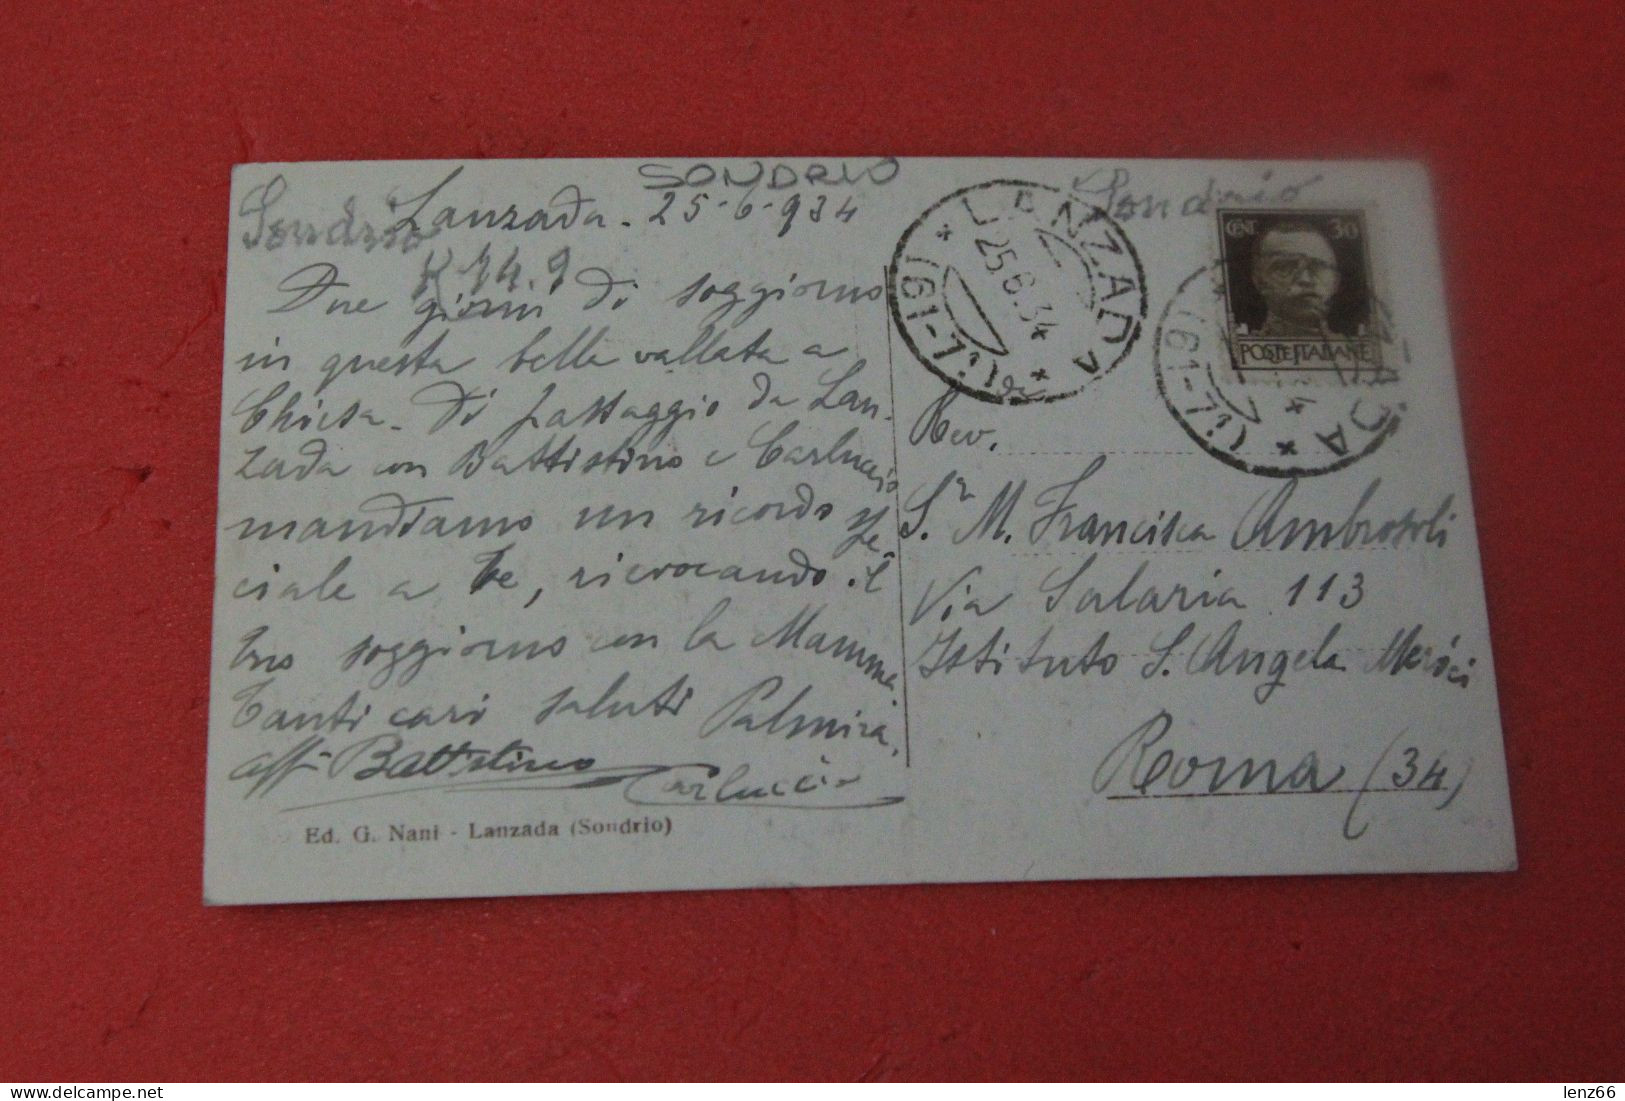 SONDRIO
Sondrio
Lanzada. 25-6-934
K 14.9
Due giorni di soggiorno
in questa bella vallata a
Chiesa. Di passaggio da Lan-
zada con Battistino e Carluccio
mandiamo un ricordo spe
ciale a Te, rievocando il
tuo soggiorno con la Mamma
Tanti cari saluti Palmira,
aff. Battistino Carluccio
Ed. G. Nani - Lanzada (Sondrio)
Sondrio
LANZADA
25.6.34
(61-7)
CENT 30
POSTE ITALIANE
Rev.
S.ra M. Francisca Ambrosoli
Via Salaria 113
Istituto S. Angela Merici
Roma (34)
lenz66